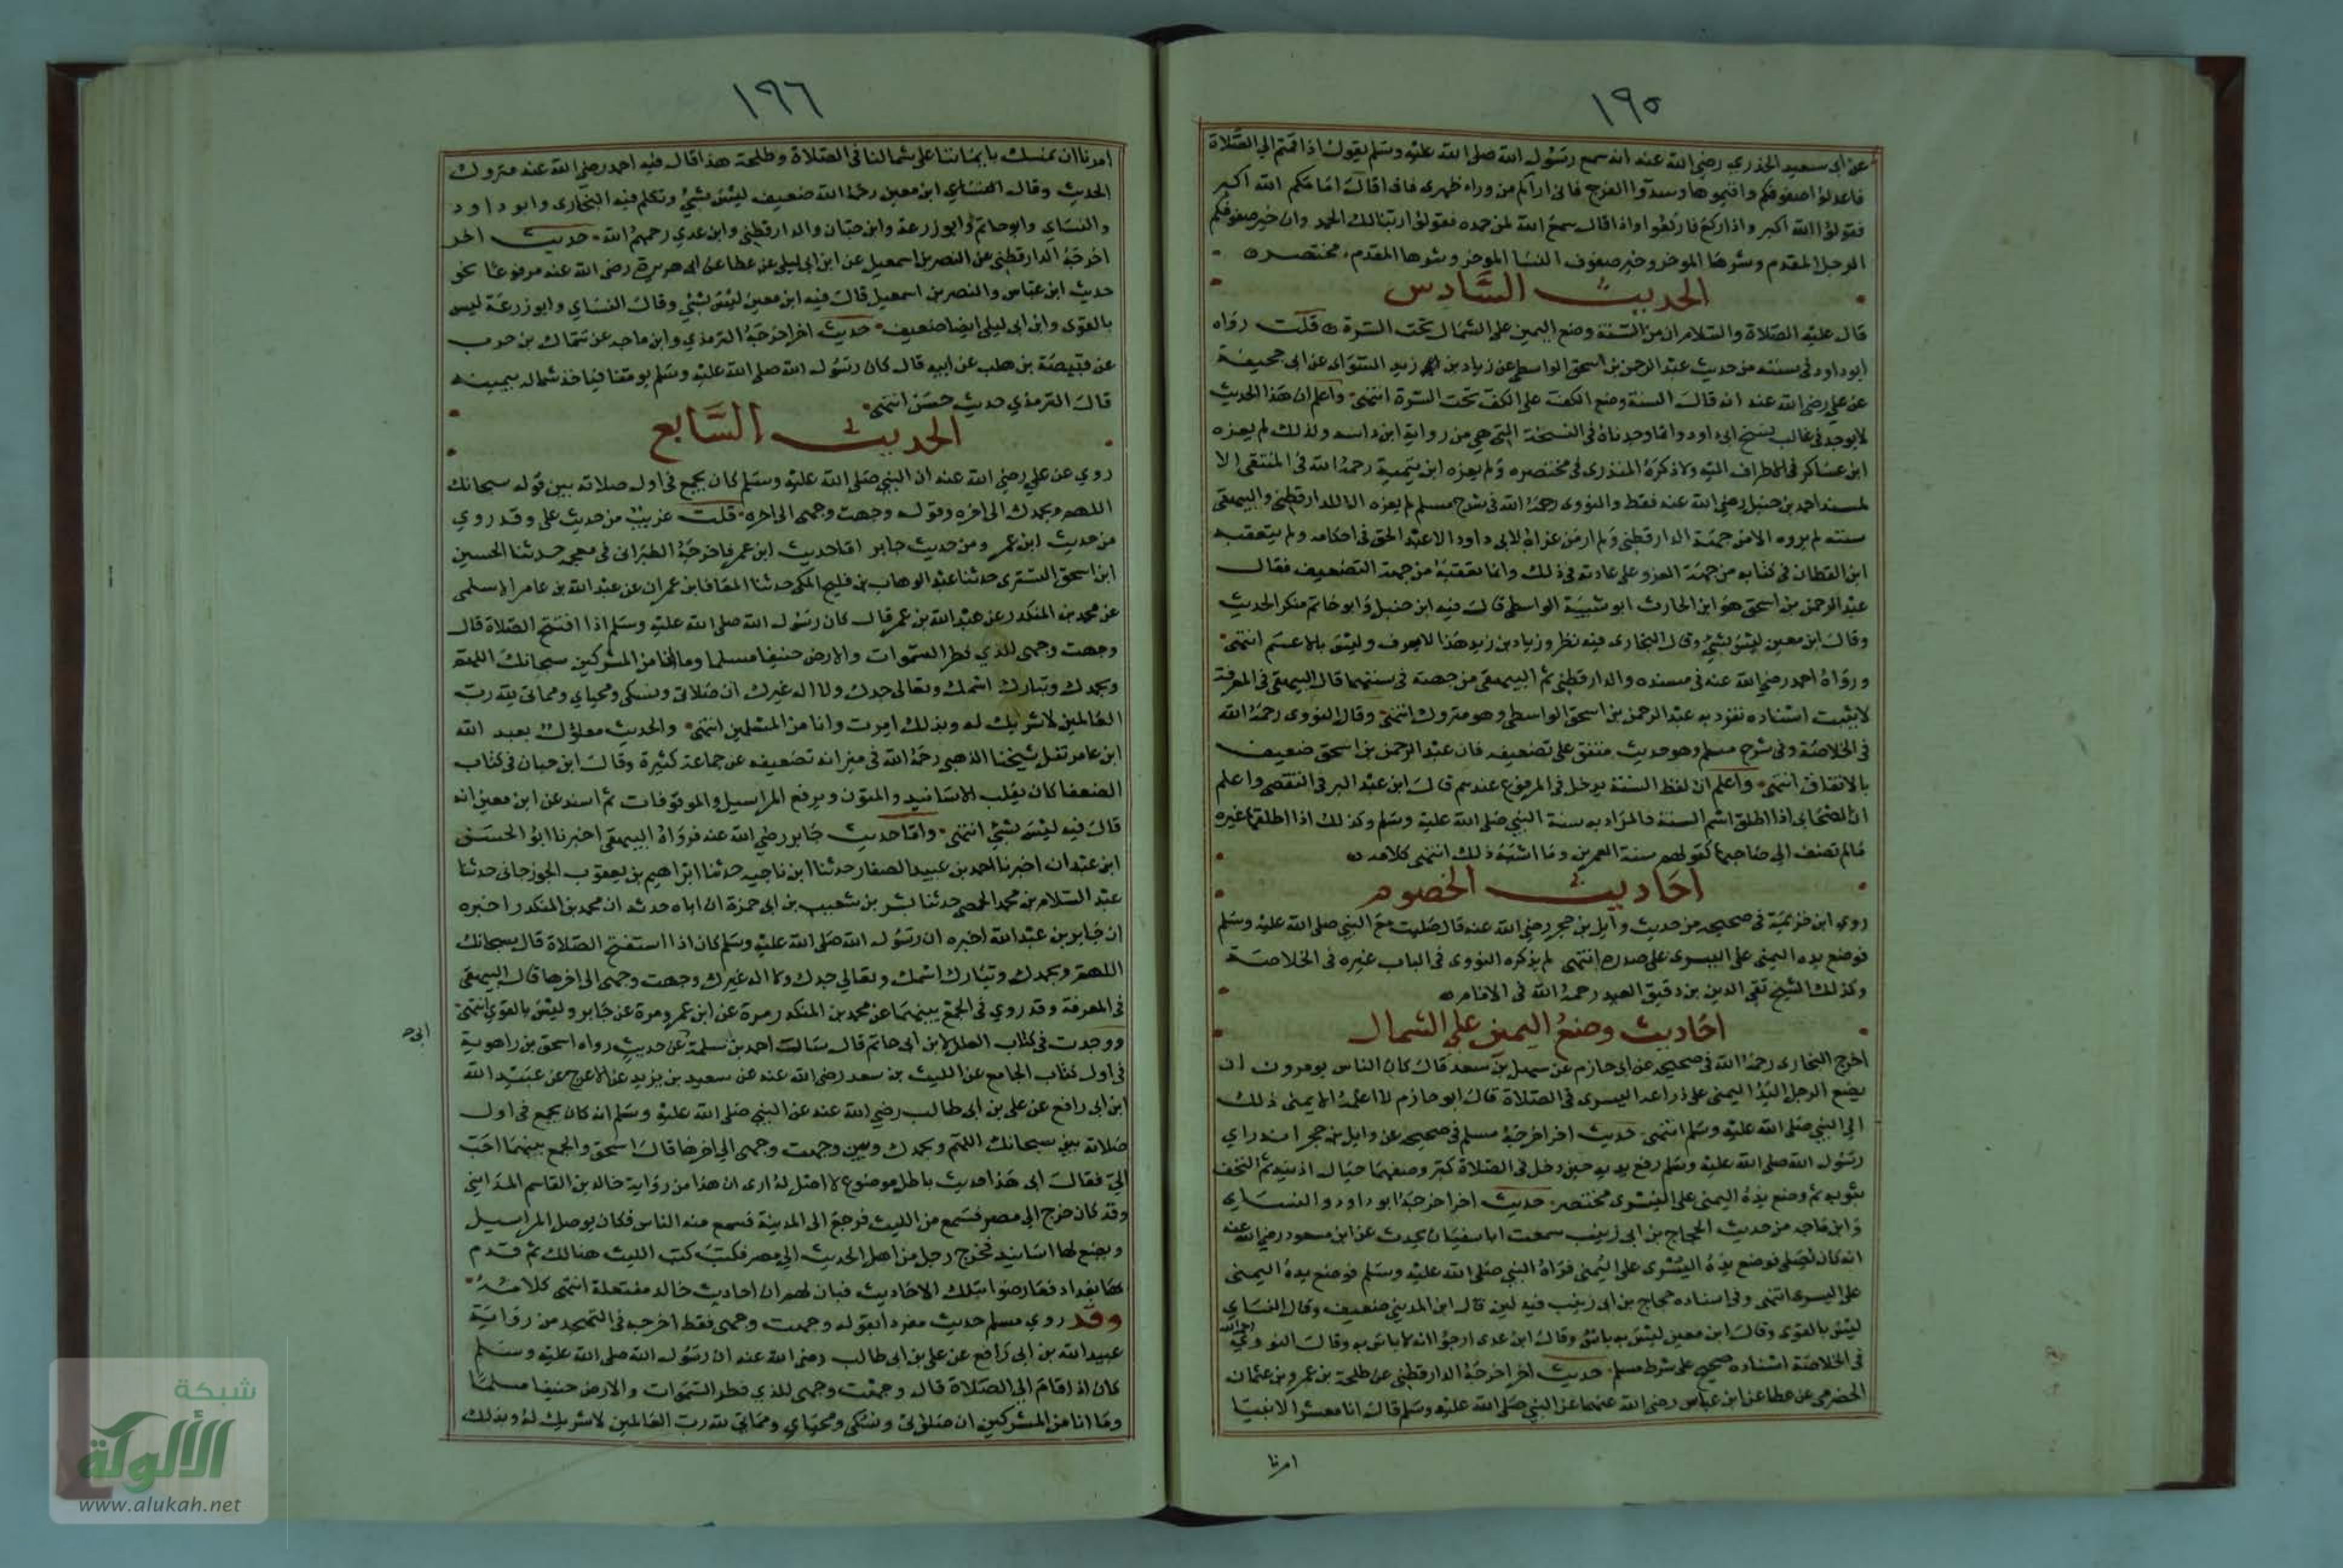 ١٩٥
عن ابي سعيد الخدري رضي الله عنه انه سمع رسول الله صلى الله عليه وسلم يقول اذا قمتم الي الصلاة
فاعدلوا صفوفكم واقيموها وسدوا الفرج فاني اراكم من وراء ظهري فاذا قال امامكم الله اكبر
فقولوا الله اكبر واذا ركع فاركعوا واذا قال سمع الله لمن حمده فقولوا ربنا لك الحمد وان خير صفوفكم
الرجل المقدم وشرها الموخر وخير صفوف النسا الموخر وشرها المقدم مختصر
الحديث السادس
قال عليه الصلاة والسلام ان من السنة وضع اليمين على الشمال تحت السرة قلت رواه
ابو داود في سننه من حديث عبد الرحمن بن اسحق الواسطي عن زياد بن زيد السوائي عن ابي جحيفة
عن علي رضي الله عنه انه قال السنة وضع الكف على الكف تحت السرة انتهى واعلم ان هذا الحديث
لا يوجد في غالب نسخ ابي داود وانما وجدناه في النسخة التي هي من رواية ابن داسه ولذلك لم يعزه
ابن عساكر في الاطراف اليه ولا ذكره المنذري في مختصره ولم يعزه ابن تيمية رحمه الله في المنتقى الا
لمسند احمد بن حنبل رضي الله عنه فقط والنووي رحمه الله في شرح مسلم لم يعزه الا للدارقطني والبيهقي
سننه لم يروه الا من جهة الدارقطني ولم ار من عزاه لابي داود الا عبد الحق في احكامه ولم يتعقبه
ابن القطان في كتابه من جهة العزو على عادته في ذلك وانما تعقبه من جهة التضعيف فقال
عبد الرحمن بن اسحق هو ابن الحارث ابو شيبة الواسطي قال فيه ابن حنبل وابو حاتم منكر الحديث
وقال ابن معين ليس بشيء وقال البخاري فيه نظر وزياد بن زيد هذا لا يعرف وليس بالاعسم انتهى
ورواه احمد رضي الله عنه في مسنده والدارقطني ثم البيهقي من جهته في سننهما قال البيهقي في المعرفة
لا يثبت اسناده تفرد به عبد الرحمن بن اسحق الواسطي وهو متروك انتهى وقال النووي رحمه الله
في الخلاصة وفي شرح مسلم وهو حديث متفق على تضعيفه فان عبد الرحمن بن اسحق ضعيف
بالاتفاق انتهى واعلم ان لفظ السنة يدخل في المرفوع عندهم قال ابن عبد البر في التقصي واعلم
ان الصحابي اذا اطلق اسم السنة فالمراد به سنة النبي صلى الله عليه وسلم وكذلك اذا اطلقها غيره
ما لم تضف الى صاحبها كقولهم سنة العمرين وما اشبه ذلك انتهى كلامه
احاديث الخصوم
روي ابن خزيمة في صحيحه من حديث وايل بن حجر رضي الله عنه قال صليت مع النبي صلى الله عليه وسلم
فوضع يده اليمنى على اليسرى على صدره انتهى لم يذكره النووي في الباب غيره في الخلاصة
وكذلك الشيخ تقي الدين بن دقيق العيد رحمه الله في الامام
احاديث وضع اليمين على الشمال
اخرج البخاري رحمه الله في صحيحه عن ابي حازم عن سهل بن سعد قال كان الناس يومرون ان
يضع الرجل اليد اليمنى على ذراعه اليسرى في الصلاة قال ابو حازم لا اعلمه الا ينمى ذلك
الى النبي صلى الله عليه وسلم انتهى حديث اخر اخرجه مسلم في صحيحه عن وايل بن حجر انه راي
رسول الله صلى الله عليه وسلم رفع يديه حين دخل في الصلاة كبر وصفهما حيال اذنيه ثم التحف
بثوبه ثم وضع يده اليمنى على اليسرى مختصر حديث اخر اخرجه ابو داود والنساي
وابن ماجه من حديث الحجاج بن ابي زينب سمعت ابا سفيان يحدث عن ابن مسعود رضي الله عنه
انه كان يصلي فوضع يده اليسرى على اليمنى فراه النبي صلى الله عليه وسلم فوضع يده اليمنى
على اليسرى انتهى وفي اسناده حجاج بن ابي زينب فيه لين قال ابن المديني ضعيف وقال النساي
ليس بالقوى وقال ابن معين ليس به باس وقال ابن عدى ارجو انه لا باس به وقال النووي رحمه الله
في الخلاصة اسناده صحيح على شرط مسلم حديث اخر اخرجه الدارقطني عن طلحة بن عمرو بن عثمان
الحضرمي عن عطا عن ابن عباس رضي الله عنهما عن النبي صلى الله عليه وسلم قال انا معشر الانبيا
امرنا
١٩٦
امرنا ان نمسك بايماننا على شمالنا في الصلاة وطلحة هذا قال فيه احمد رضي الله عنه متروك
الحديث وقال ابن معين رحمه الله ضعيف ليس بشيء وتكلم فيه البخاري وابو داود
والنساي وابو حاتم وابو زرعة وابن حبان والدارقطني وابن عدي رحمهم الله حديث اخر
اخرجه الدارقطني عن النضر بن اسمعيل عن ابن ابي ليلى عن عطا عن ابي هريرة رضي الله عنه مرفوعا نحو
حديث ابن عباس والنضر بن اسمعيل قال فيه ابن معين ليس بشيء وقال النساي وابو زرعة ليس
بالقوى وابن ابي ليلى ايضا ضعيف حديث اخر اخرجه الترمذي وابن ماجه عن سماك بن حرب
عن قبيصة بن هلب عن ابيه قال كان رسول الله صلى الله عليه وسلم يومنا فياخذ شماله بيمينه
قال الترمذي حديث حسن انتهى
الحديث السابع
روي عن علي رضي الله عنه ان النبي صلى الله عليه وسلم كان يجمع في اول صلاته بين قوله سبحانك
اللهم وبحمدك الى اخره وقوله وجهت وجهى الى اخره قلت غريب من حديث علي وقد روي
من حديث ابن عمر ومن حديث جابر اما حديث ابن عمر فاخرجه الطبراني في معجمه حدثنا الحسين
ابن اسحق التستري حدثنا عبد الوهاب بن فليح المكي حدثنا المعافا بن عمران عن عبد الله بن عامر الاسلمى
عن محمد بن المنكدر عن عبد الله بن عمر قال كان رسول الله صلى الله عليه وسلم اذا افتتح الصلاة قال
وجهت وجهى للذي فطر السموات والارض حنيفا مسلما وما انا من المشركين سبحانك اللهم
وبحمدك وتبارك اسمك وتعالى جدك ولا اله غيرك ان صلاتى ونسكى ومحياي ومماتى لله رب
العالمين لا شريك له وبذلك امرت وانا من المسلمين انتهى والحديث معلول بعبد الله
ابن عامر نقل شيخنا الذهبي رحمه الله في ميزانه تضعيفه عن جماعة كثيرة وقال ابن حبان في كتاب
الضعفا كان يقلب الاسانيد والمتون ويرفع المراسيل والموقوفات ثم اسند عن ابن معين انه
قال فيه ليس بشئ انتهى واما حديث جابر رضي الله عنه فرواه البيهقى اخبرنا ابو الحسن
ابن عبدان اخبرنا احمد بن عبيد الصفار حدثنا ابن ناجيه حدثنا ابراهيم بن يعقوب الجوزجاني حدثنا
عبد السلام بن محمد الحمصي حدثنا بشر بن شعيب بن ابي حمزة ان اباه حدثه ان محمد بن المنكدر اخبره
ان جابر بن عبد الله اخبره ان رسول الله صلى الله عليه وسلم كان اذا استفتح الصلاة قال سبحانك
اللهم وبحمدك وتبارك اسمك وتعالي جدك ولا اله غيرك وجهت وجهى الى اخرها قال البيهقى
في المعرفة وقد روي في الجمع بينهما عن محمد بن المنكدر مرة عن ابن عمر ومرة عن جابر وليس بالقوي انتهى
ووجدت في كتاب العلل لابن ابي حاتم قال سالت احمد بن سلمة عن حديث رواه اسحق بن راهوية
ابي
في اول كتاب الجامع عن الليث بن سعد رضي الله عنه عن سعيد بن يزيد عن الاعرج عن عبيد الله
ابن ابي رافع عن علي بن ابي طالب رضي الله عنه عن النبي صلى الله عليه وسلم انه كان يجمع في اول
صلاته بين سبحانك اللهم وبحمدك وبين وجهت وجهى الي اخرها قال اسحق والجمع بينهما احب
الي فقال ابي هذا حديث باطل موضوع لا اصل له ارى ان هذا من رواية خالد بن القاسم المدايني
وقد كان خرج الي مصر فسمع من الليث فرجع الى المدينة فسمع منه الناس فكان يوصل المراسيل
ويضع لها اسانيد فخرج رجل من اهل الحديث الي مصر فكتب كتب الليث هنالك ثم قدم
بها بغداد فعارضوا بتلك الاحاديث فبان لهم ان احاديث خالد مفتعلة انتهى كلامه
وقد روي مسلم حديث مفردا بقوله وجهت وجهى فقط اخرجه في التهجد من رواية
عبيد الله بن ابي رافع عن علي بن ابي طالب رضي الله عنه ان رسول الله صلى الله عليه وسلم
كان اذا قام الي الصلاة قال وجهت وجهى للذي فطر السموات والارض حنيفا مسلما
وما انا من المشركين ان صلاتي ونسكي ومحياي ومماتي لله رب العالمين لا شريك له وبذلك
شبكة
الألوكة
www.alukah.net